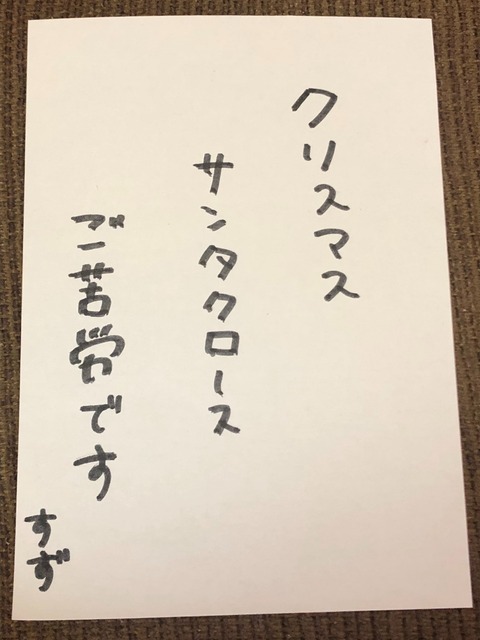 クリスマス
サンタクロース
ご苦労です
すず